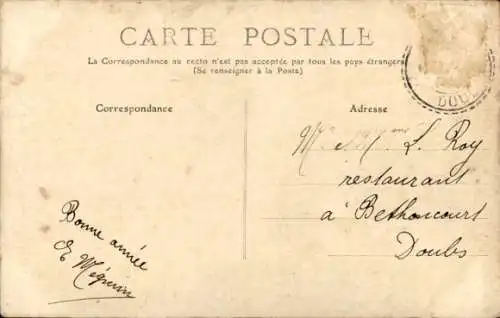 CARTE POSTALE
La Correspondance au recto n'est pas acceptée par tous les pays étrangers
(Se renseigner à la Poste)
Correspondance
Adresse
DOUBS
M et Mme L. Roy
restaurant
à Bethoncourt
Doubs
Bonne année
E Méquin